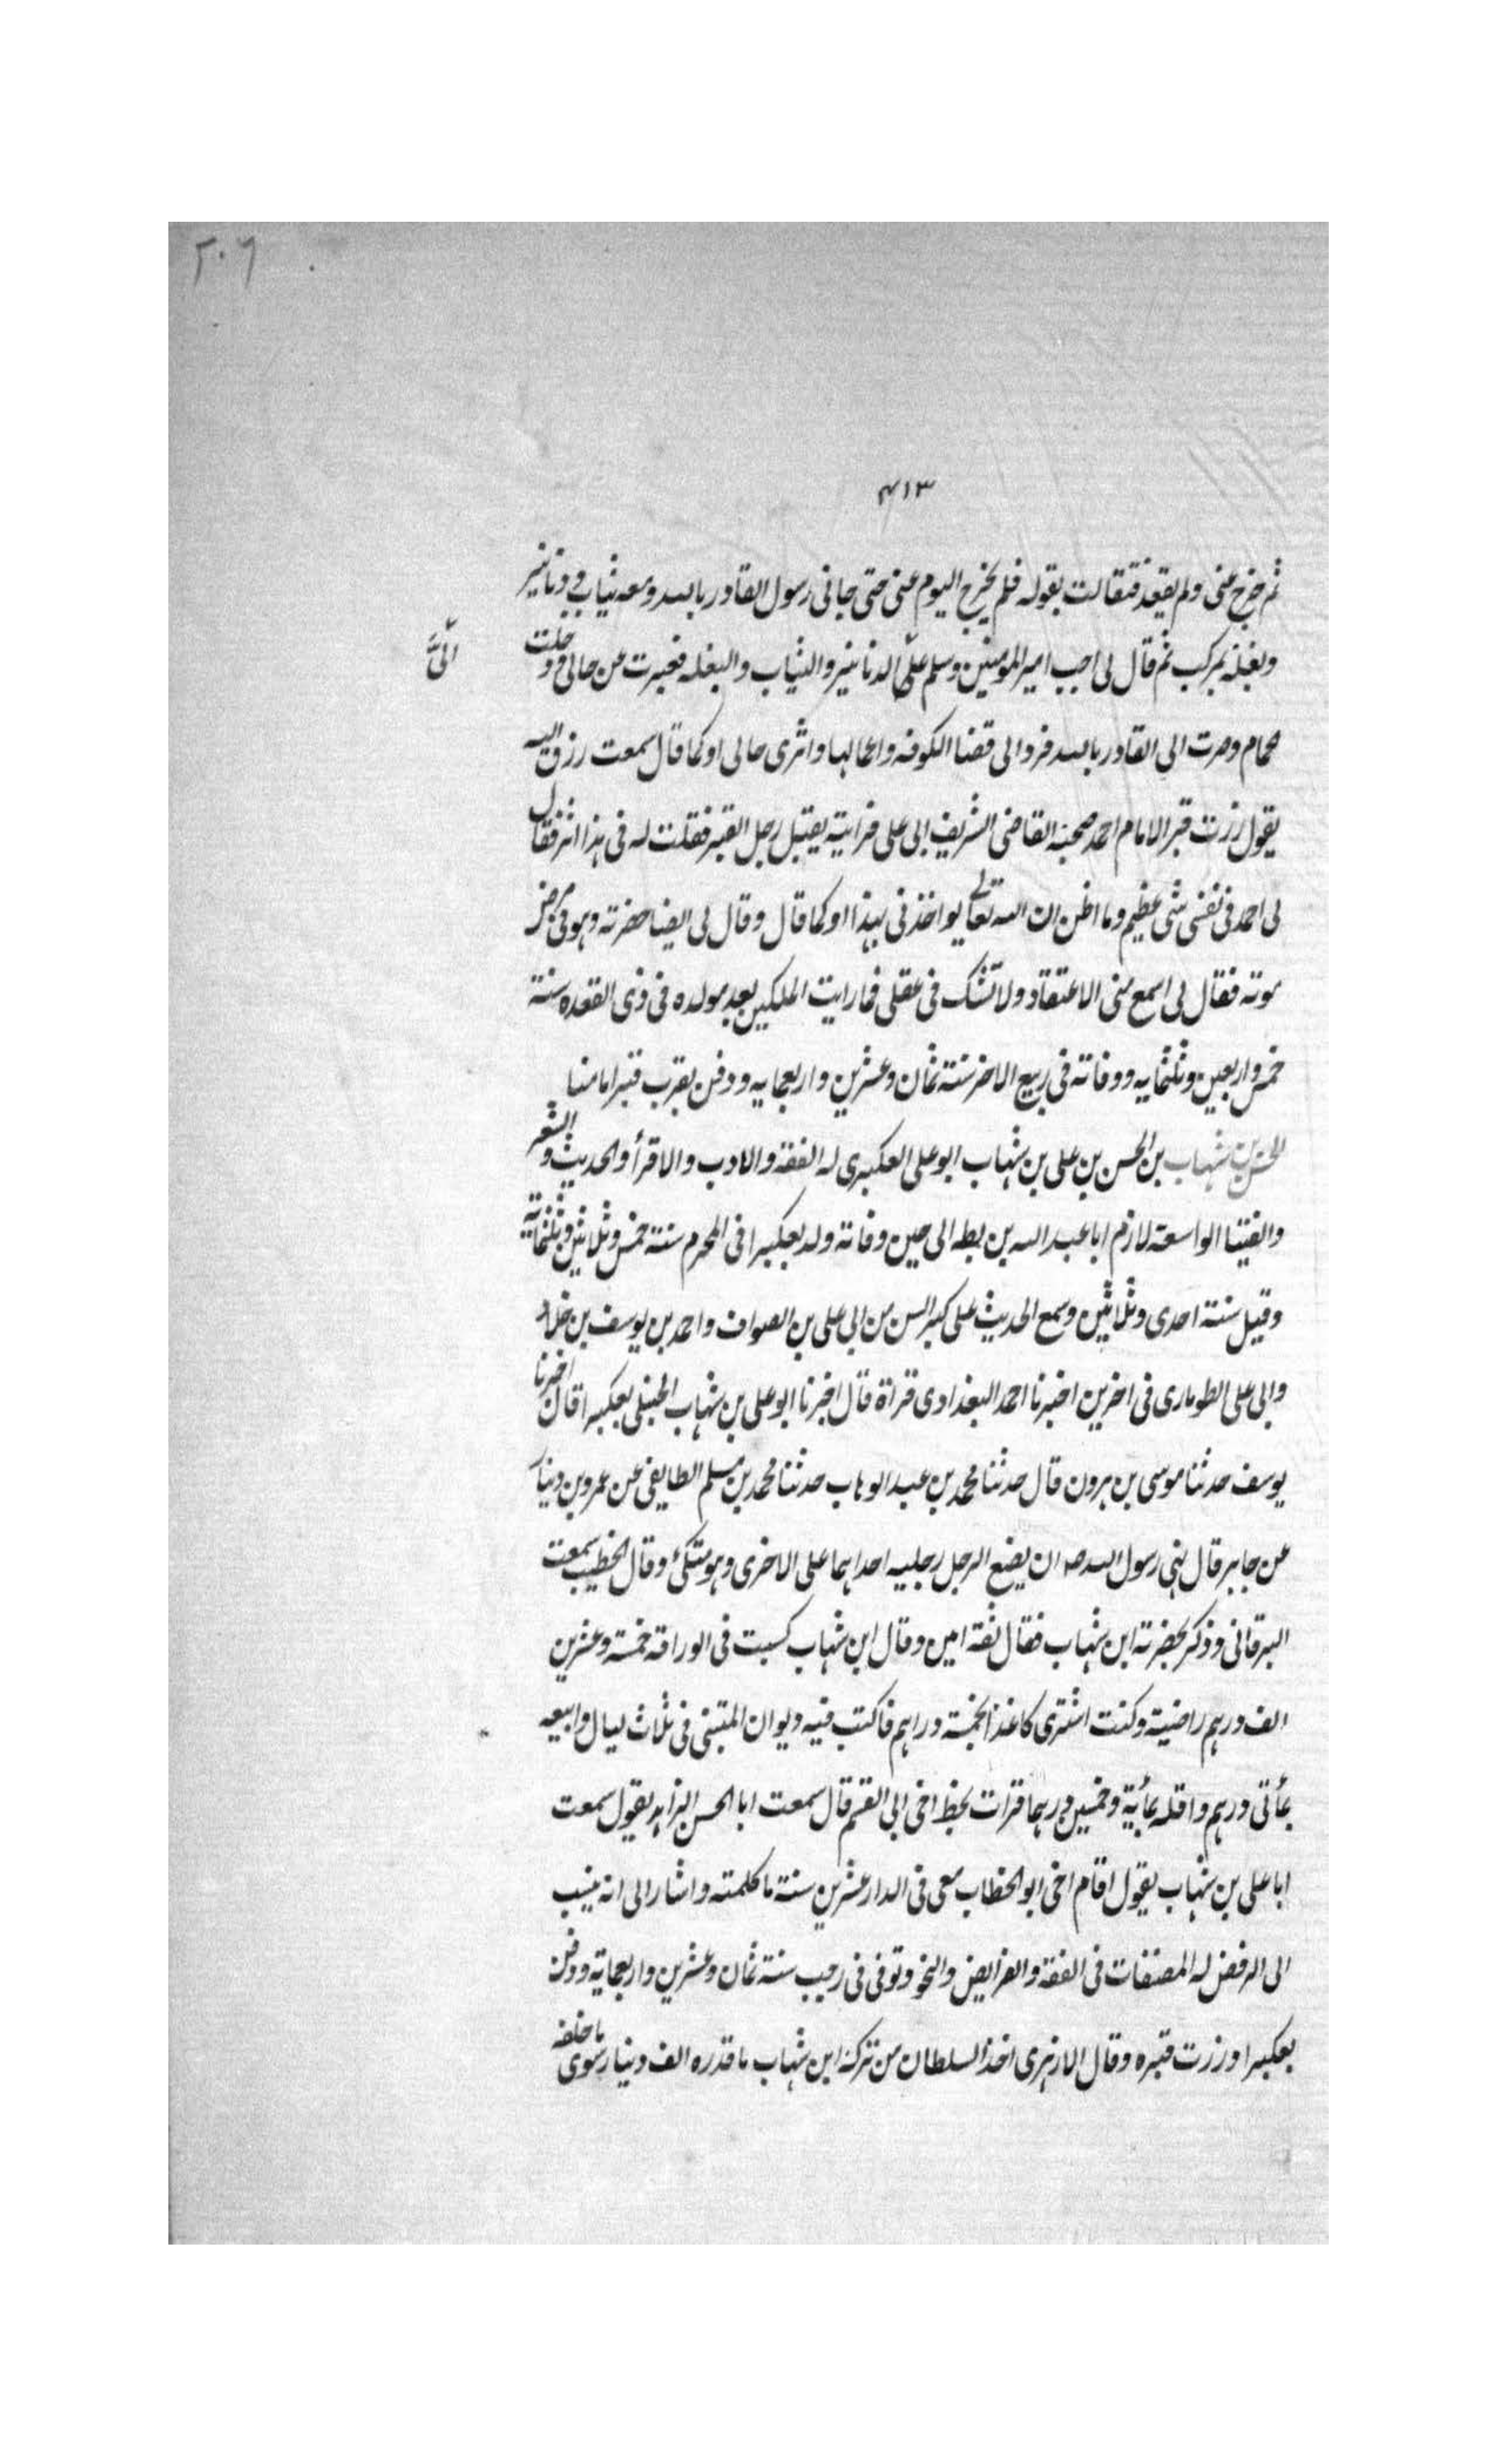 ٢٠٦
٤١٣
ثم خرج عنى ولم يقعد فتقالت بقوله فلم يخرج اليوم عنى حتى جانى رسول القادر بالله ومعه ثياب ودنانير
وبغلة بمركب ثم قال لى اجب امير المومنين وسلم علىّ الدنانير والثياب والبغله فغيرت من حالى ودخلت
الىَّ
حمام وصرت الى القادر بالله فرد الى قضا الكوفه واعمالها واثرى حالى او كما قال سمعت رزق الله
يقول زرت قبر الامام احمد صحبة القاضى الشريف ابى على فرايته يقبل رجل القبر فقلت له فى هذا اثر فقال
لى احمد فى نفسى شى عظيم وما اظن ان الله تعالى يواخذنى بهذا او كما قال وقال لى ايضا حضرته وهو فى مرض
موته فقال لى اسمع منى الاعتقاد ولا تشك فى عقلى فما رايت الملكين بعد مولده فى ذى القعده سنة
خمس واربعين وثلثمايه ووفاته فى ربيع الاخر سنة ثمان وعشرين واربعمايه ودفن بقرب قبر امامنا
الحسن بن شهاب بن الحسن بن على بن شهاب ابو على العكبرى له الفقه والادب والاقرأ والحديث والشعر
والفتيا الواسعة لازم ابا عبد الله بن بطه الى حين وفاته ولد بعكبرا فى المحرم سنة خمس وثلاثين وثلثماية
وقيل سنة احدى وثلاثين وسمع الحديث على كبر السن من ابى على بن الصواف واحمد بن يوسف بن خلاد
وابى على الطومارى فى اخرين اخبرنا احمد البغدادى قراة قال اخبرنا ابو على بن شهاب الحنبلى بعكبرا قال اخبرنا
يوسف حدثنا موسى بن هرون قال حدثنا محمد بن عبد الوهاب حدثنا محمد بن مسلم الطايفى عن عمرو بن دينار
عن جابر قال نهى رسول الله صلا ان يضع الرجل رجليه احداهما على الاخرى وهو متكئ وقال الخطيب سمعت
البرقانى وذكر بحضرته ابن شهاب فقال ثقه امين وقال ابن شهاب كسبت فى الوراقه خمسة وعشرين
الف درهم راضية وكنت اشترى كاغذا بخمسة دراهم فاكتب فيه ديوان المتنبى فى ثلاث ليال وابيعه
بمأتى درهم واقله بمأية وخمسين درهما قرات بخط اخى ابى القسم قال سمعت ابا الحسن الزاهد يقول سمعت
ابا على بن شهاب يقول اقام اخى ابو الخطاب معى فى الدار عشرين سنة ما كلمته واشار الى انه ينسب
الى الرفض له المصنفات فى الفقه والفرايض والنحو وتوفى فى رجب سنة ثمان وعشرين واربعماية ودفن
بعكبرا وزرت قبره وقال الازهرى اخذ السلطان من تركة ابن شهاب ما قدره الف دينار سوى ما خلفه